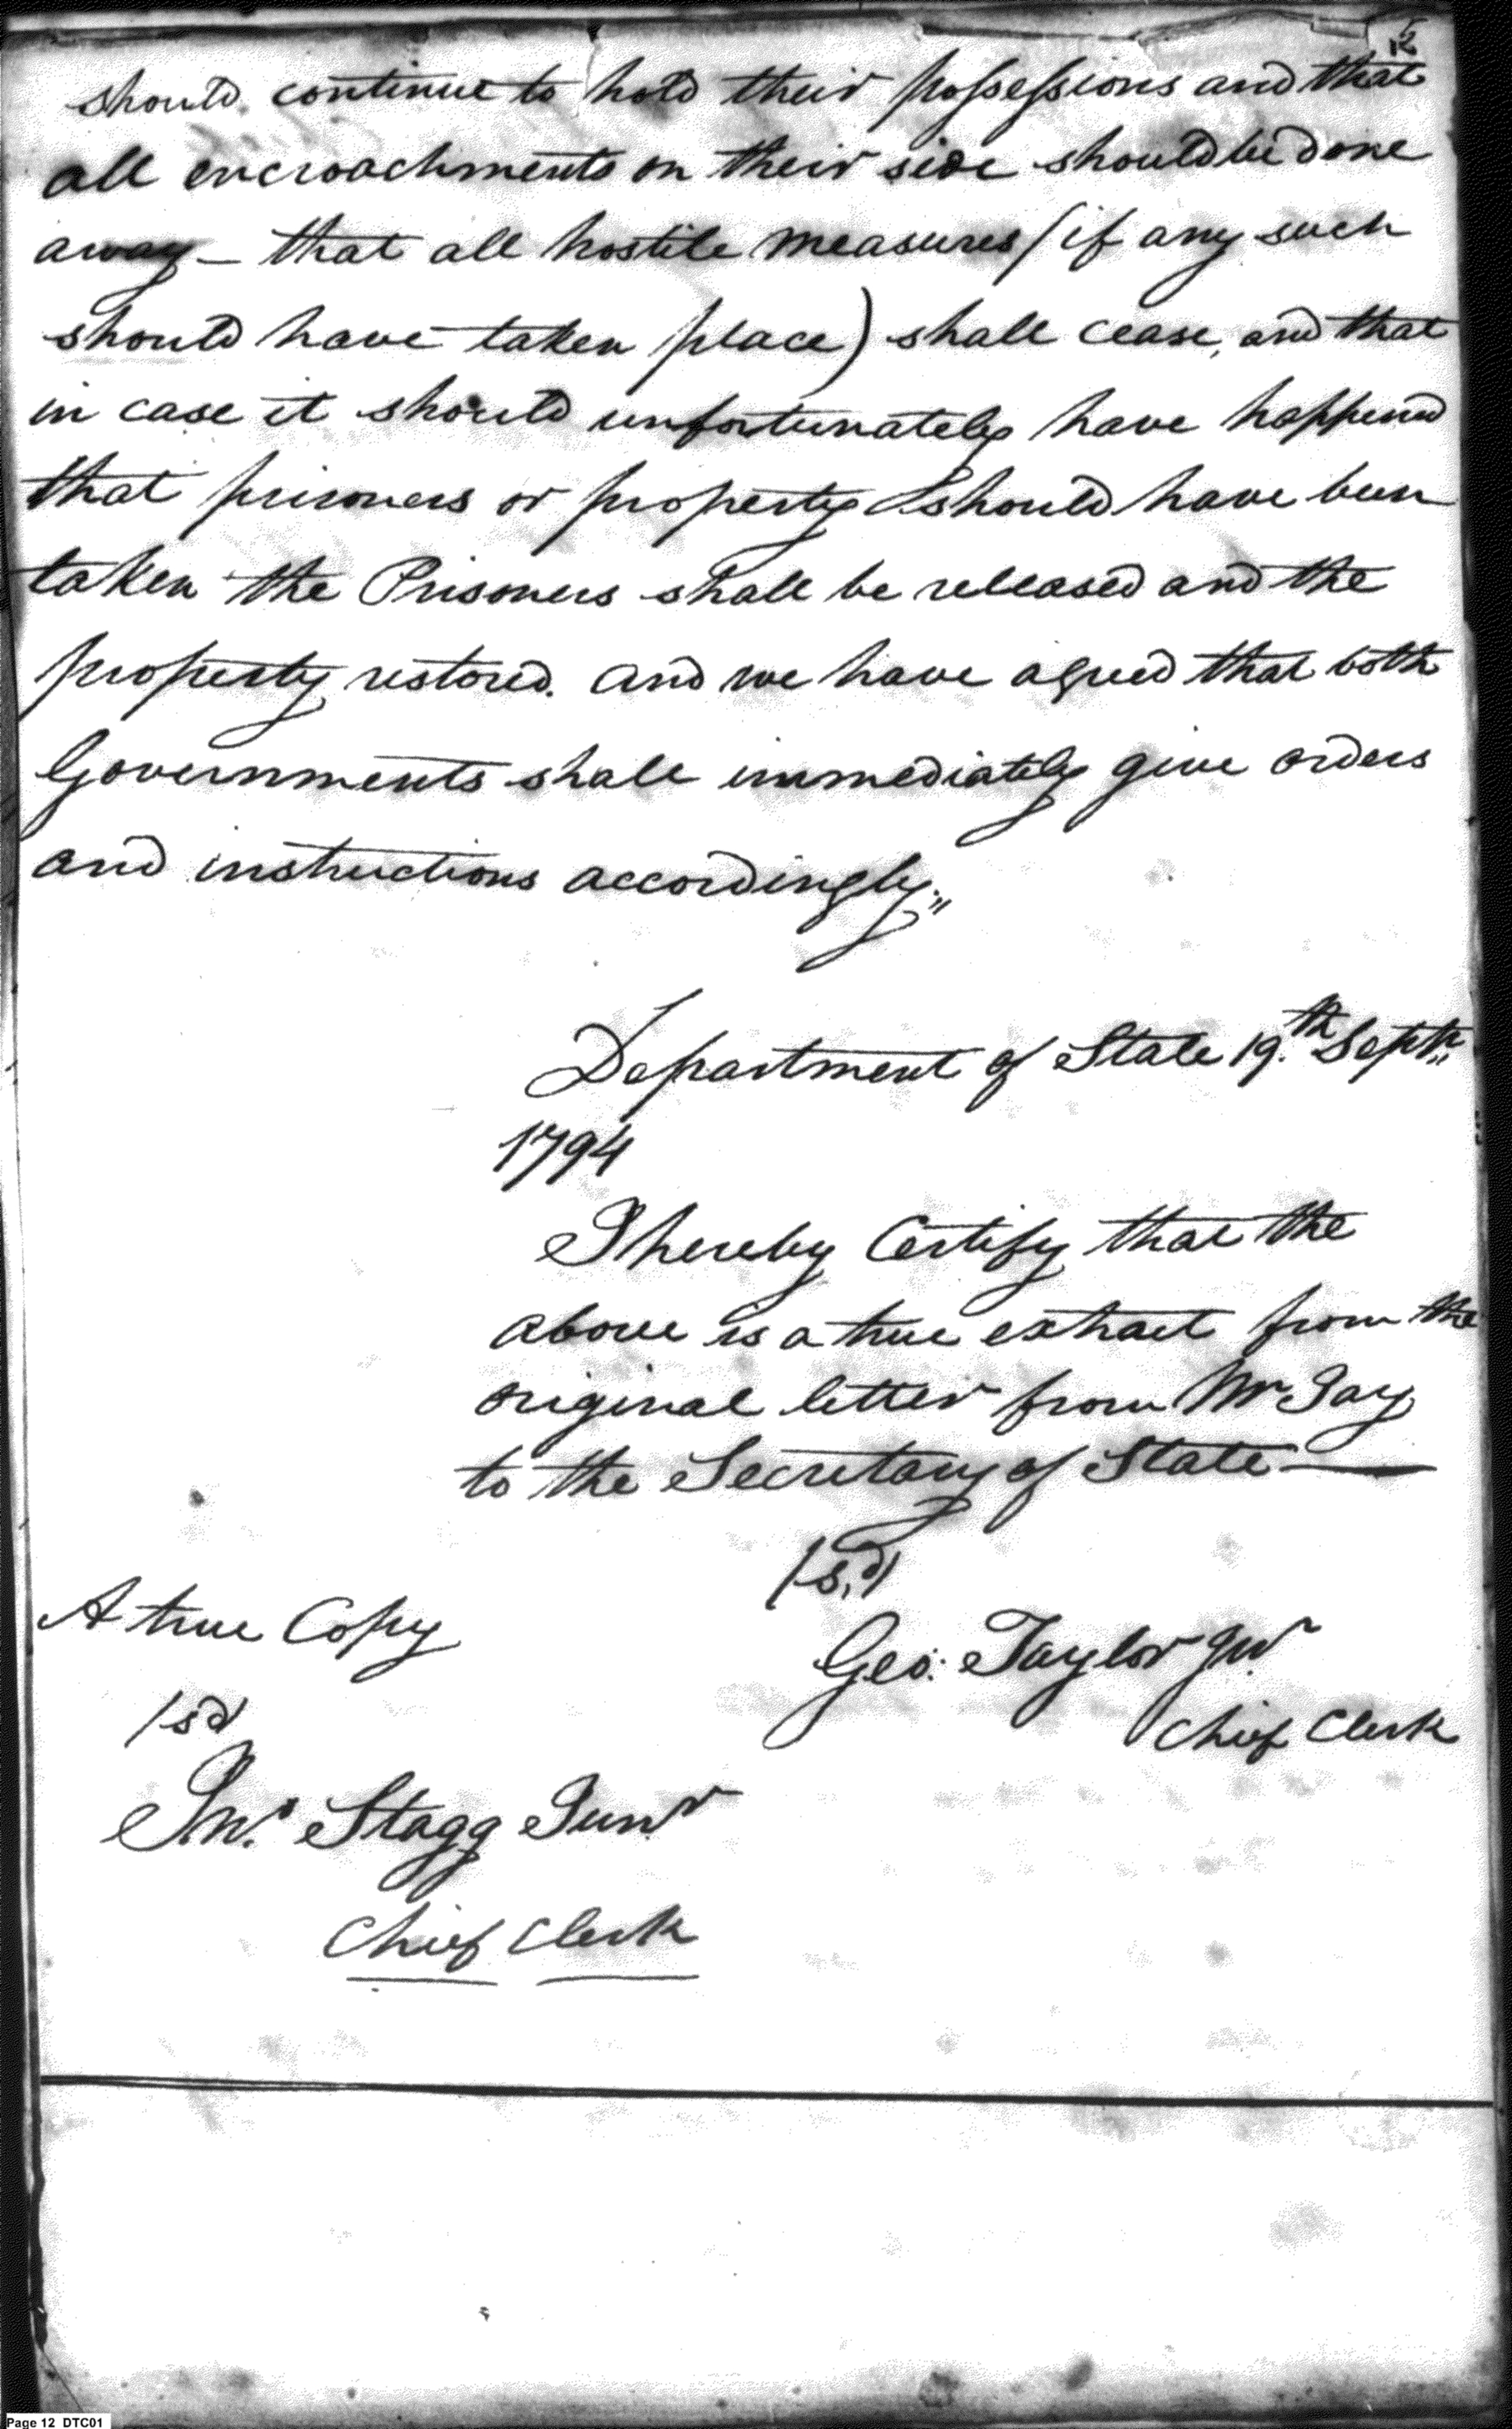 12
should continue to hold their possessions and that
all encroachments on their side should be done
away – that all hostile measures (if any such
should have taken place) shall cease, and that
in case it should unfortunately have happened
that prisoners or property should have been
taken the Prisoners shall be released and the
property restored. and we have agreed that both
Governments shall immediately give orders
and instructions accordingly."
Department of State 19.th Septr.
1794
I hereby Certify that the
above is a true extract from the
original letter from Mr Jay
to the Secretary of State —
/s,d/
A true Copy
Geo: Taylor Jnr
/sd/
Chief Clerk
Jno. Stagg Junr
Chief Clerk
Page 12 DTC01